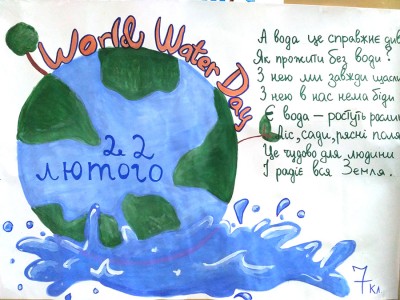 World Water Day
22
лютого
А вода це справжнє
Як прожити без води?
З нею ми завжди
З нею в нас нема біди
Є вода – ростуть
Ліс, сади, рясні поля
Це чудово для людини
І радіє вся Земля.
7 кл.